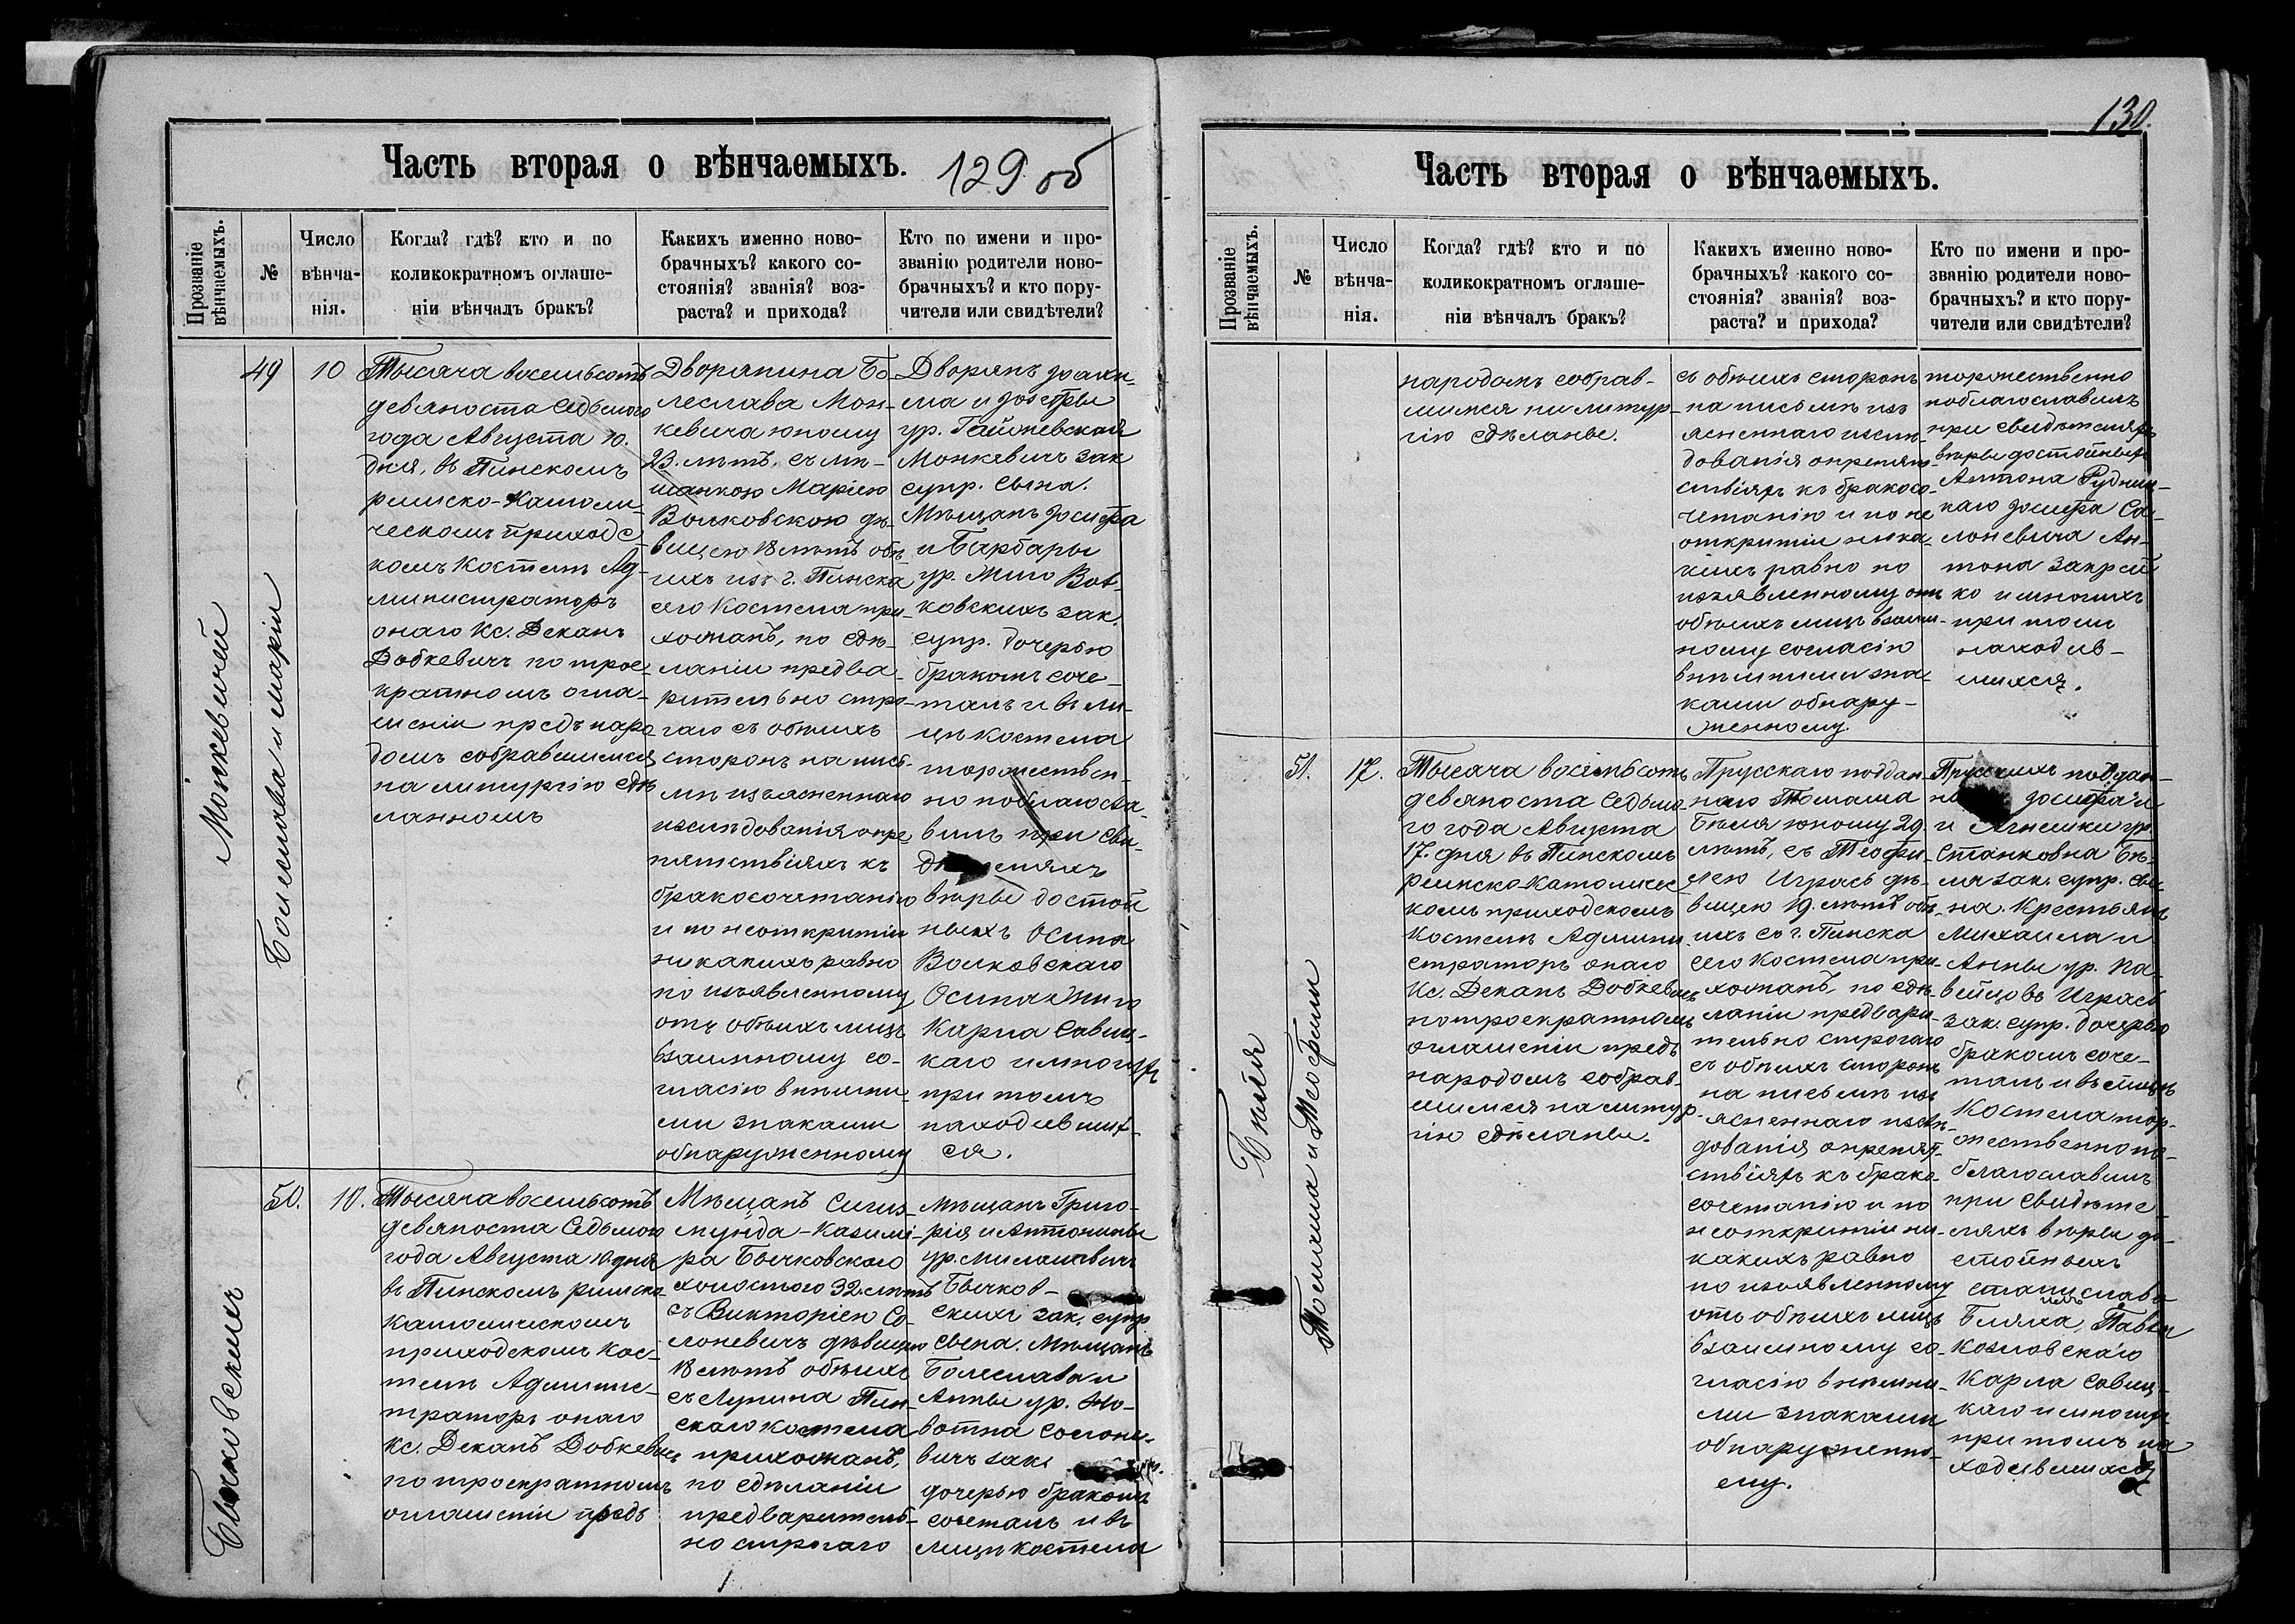 Часть вторая о вѣнчаемыхъ.
129 об
Прозваніе вѣнчаемыхъ.
№
Число вѣнча-
нія.
Когда? гдѣ? кто и по
коликократномъ оглаше-
ніи вѣнчалъ бракъ?
Какихъ именно ново-
брачныхъ? какого со-
стоянія? званія? воз-
раста? и прихода?
Кто по имени и про-
званію родители ново-
брачныхъ? и кто пору-
чители или свидѣтели?
Монкевичей
Болеслава и Маріи
49
10
Тысяча восемьсотъ
девяноста седьмого
года Августа 10.
дня, въ Пинскомъ
римско-католи-
ческомъ приходс-
комъ Костелѣ Ад-
министраторъ
онаго Кс. Деканъ
Добкевичъ по трое-
кратномъ огла-
шеніи предъ наро
домъ собравшимся
на литургію сдѣ
ланномъ
Дворянина Бо-
леслава Мон-
кевича юному
23. лѣтъ, съ мѣ-
щанкою Маріею
Волковскою дѣ-
вицею 18 лѣтъ обѣ
ихъ изъ г. Пинска
сего Костела при-
хожанъ, по сдѣ-
ланіи предва-
рительно стро-
гаго съ обѣихъ
сторонъ на пись-
мѣ изъясненнаго
изслѣдованія о пре
пятствіяхъ къ
бракосочетанію
и по неоткрытіи
никакихъ равно
по изъявленному
отъ обѣихъ лицъ
взаимному со-
гласію внѣшни-
ми знаками
обнаруженному
Дворянъ Іоахи-
ма и Іозефы
ур. Гайжевская
Монкевичъ зак
супр. сына.
Мѣщанъ Іосифа
и Барбары
ур. Мило Вол-
ковскихъ зак.
супр. дочерью
бракомъ соче-
талъ и въ ли-
цѣ костела
торжествен-
но поблагосла-
вилъ при сви-
вѣры достой
ныхъ Осипа
Волковскаго
Осипа
Карла Савиц-
каго и многихъ
при томъ
находивших-
ся.
Бычковскихъ
50.
10.
Тысяча восемьсотъ
девяноста седьмого
года Августа 10 дня
въ Пинскомъ римско
католическомъ
приходскомъ Кос-
телѣ Админис-
траторъ онаго
Кс. Деканъ Добкевичъ
по троекратномъ
оглашеніи предъ
Мѣщанъ Сигиз-
мунда-Казимі-
ра Бычковскаго
холостого 32 лѣтъ
съ Викторіею Со-
лоневичъ дѣвицею
18 лѣтъ обѣихъ
съ Лунина Пин-
скаго костела
прихожанъ,
по сдѣланіи
предваритель-
но строгаго
Мѣщанъ Григо-
рія и Антонины
ур.
Бычков-
скихъ зак. супр
сына. Мѣщанъ
Болеслава и
Анны ур. Жи-
вотна Солоне-
вичъ зак.
дочерью бракомъ
сочеталъ и въ
лицѣ костела
130.
Часть вторая о вѣнчаемыхъ.
Прозваніе вѣнчаемыхъ.
№
Число вѣнча-
нія.
Когда? гдѣ? кто и по
коликократномъ оглаше-
ніи вѣнчалъ бракъ?
Какихъ именно ново-
брачныхъ? какого со-
стоянія? званія? воз-
раста? и прихода?
Кто по имени и про-
званію родители ново-
брачныхъ? и кто пору-
чители или свидѣтели?
народомъ собрав-
шимся на литур-
гію сдѣланье.
съ обѣихъ сторонъ
на письмѣ изъ
ясненнаго изслѣ-
дованія о препят-
ствіяхъ къ бракосо-
четанію и по не
открытіи ника-
кихъ равно по
изъявленному отъ
обѣихъ лицъ взаим-
ному согласію
внѣшними зна-
ками обнару-
женному.
торжественно
поблагославилъ
при свидѣтеляхъ
вѣры достойныхъ
Антона Рудниц-
каго Іосифа Со-
лоневича Ан-
тона
ко и многихъ
при томъ
находив-
шихся.
Бѣля
Томаша и Теофили
51.
17.
Тысяча восемьсотъ
девяноста седьмо
го года Августа
17. дня въ Пинскомъ
римско-католичес
комъ приходскомъ
Костелѣ Админи
страторъ онаго
Кс. Деканъ Добкевичъ
по троекратномъ
оглашеніи предъ
народомъ собрав-
шимся на литур-
гію сдѣланье.
Прусскаго поддан-
наго Томаша
Бѣля юному 29.
лѣтъ, съ Теофи-
лею Играсъ дѣ-
вицею 19. лѣтъ обѣ-
ихъ съ г. Пинска
сего Костела при-
хожанъ, по сдѣ-
ланіи предвари-
тельно строгаго
съ обѣихъ сторонъ
на письмѣ изъ
ясненнаго изслѣ-
дованія о препят-
ствіяхъ къ брако-
сочетанію и по
неоткрытіи ни-
какихъ равно
по изъявленному
отъ обѣихъ лицъ
взаимному со-
гласію внѣшни-
ми знаками
обнаруженно-
ему.
Прусскихъ поддан-
Іосифа и
и Агнешки ур.
Станковна Бѣ-
ля зак. супр. сы-
на. Крестьянъ
Михаила и
Анны ур. Па-
вейцовъ Играсъ
зак. супр. дочерью
бракомъ соче-
талъ и въ лицѣ
Костела тор-
жественно по-
благославилъ
при свидѣте-
ляхъ вѣры до-
стойныхъ
Станислава
Павла
Козловскаго
Карла Савиц-
каго и многихъ
при томъ на
ходившихся